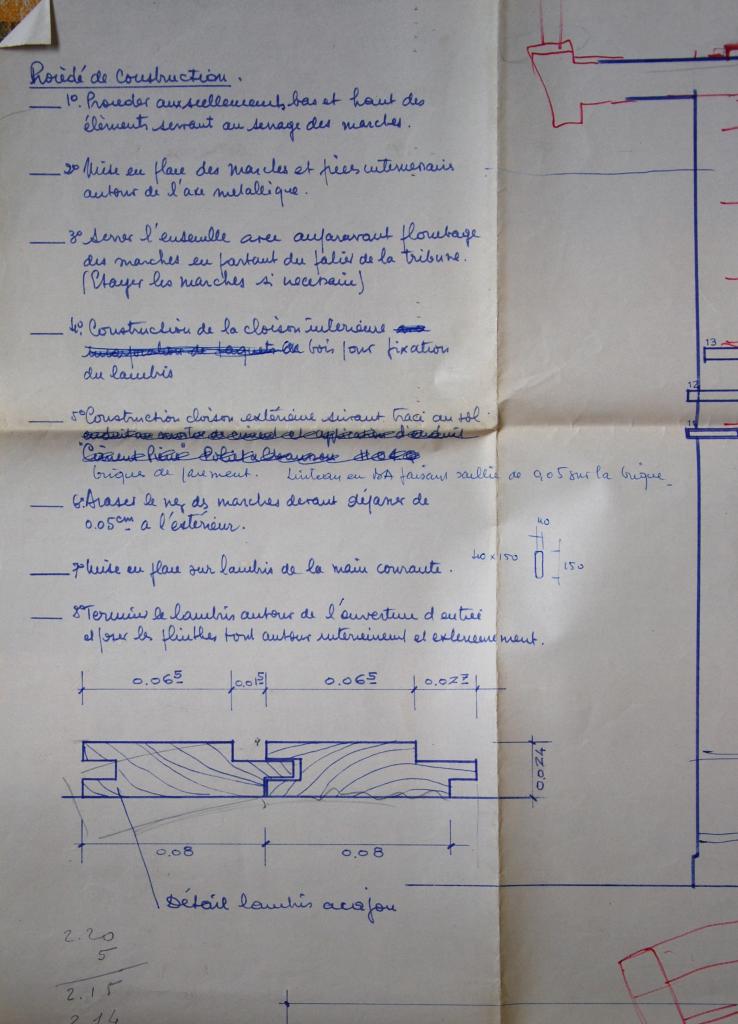 Procédé de Construction.
1º. Proceder aux scellements bas et haut des
éléments servant au serrage des marches.
2º Mise en place des marches et pièces intermediaires
autour de l'axe metallique.
3º Serrer l'ensemble avec auparavant plombage
des marches en partant du palier de la tribune.
(Etayer les marches si necessaire)
4º. Construction de la cloison interieure
incorporation de taquets de bois pour fixation
du lambris
13
12
11
5º Construction cloison extérieure suivant tracé au sol
enduit au mortier de ciment et application d'enduit
"Ciment Pierre"
brique de parement. Linteau en BA faisant saillie de 0,05 sur la brique
6º. Araser le nez des marches devant dépasser de
0.05cm a l'extérieur.
40
40 x 150
150
7º Mise en place sur lambris de la main courante.
8º Terminer le lambris autour de l'ouverture d'entrée
et poser les plinthes tout autour interieurement et exterieurement.
0.065 0.015 0.065 0.027
0.024
0.08 0.08
Détail lambris acajou
2.20
5
2.15
2.14